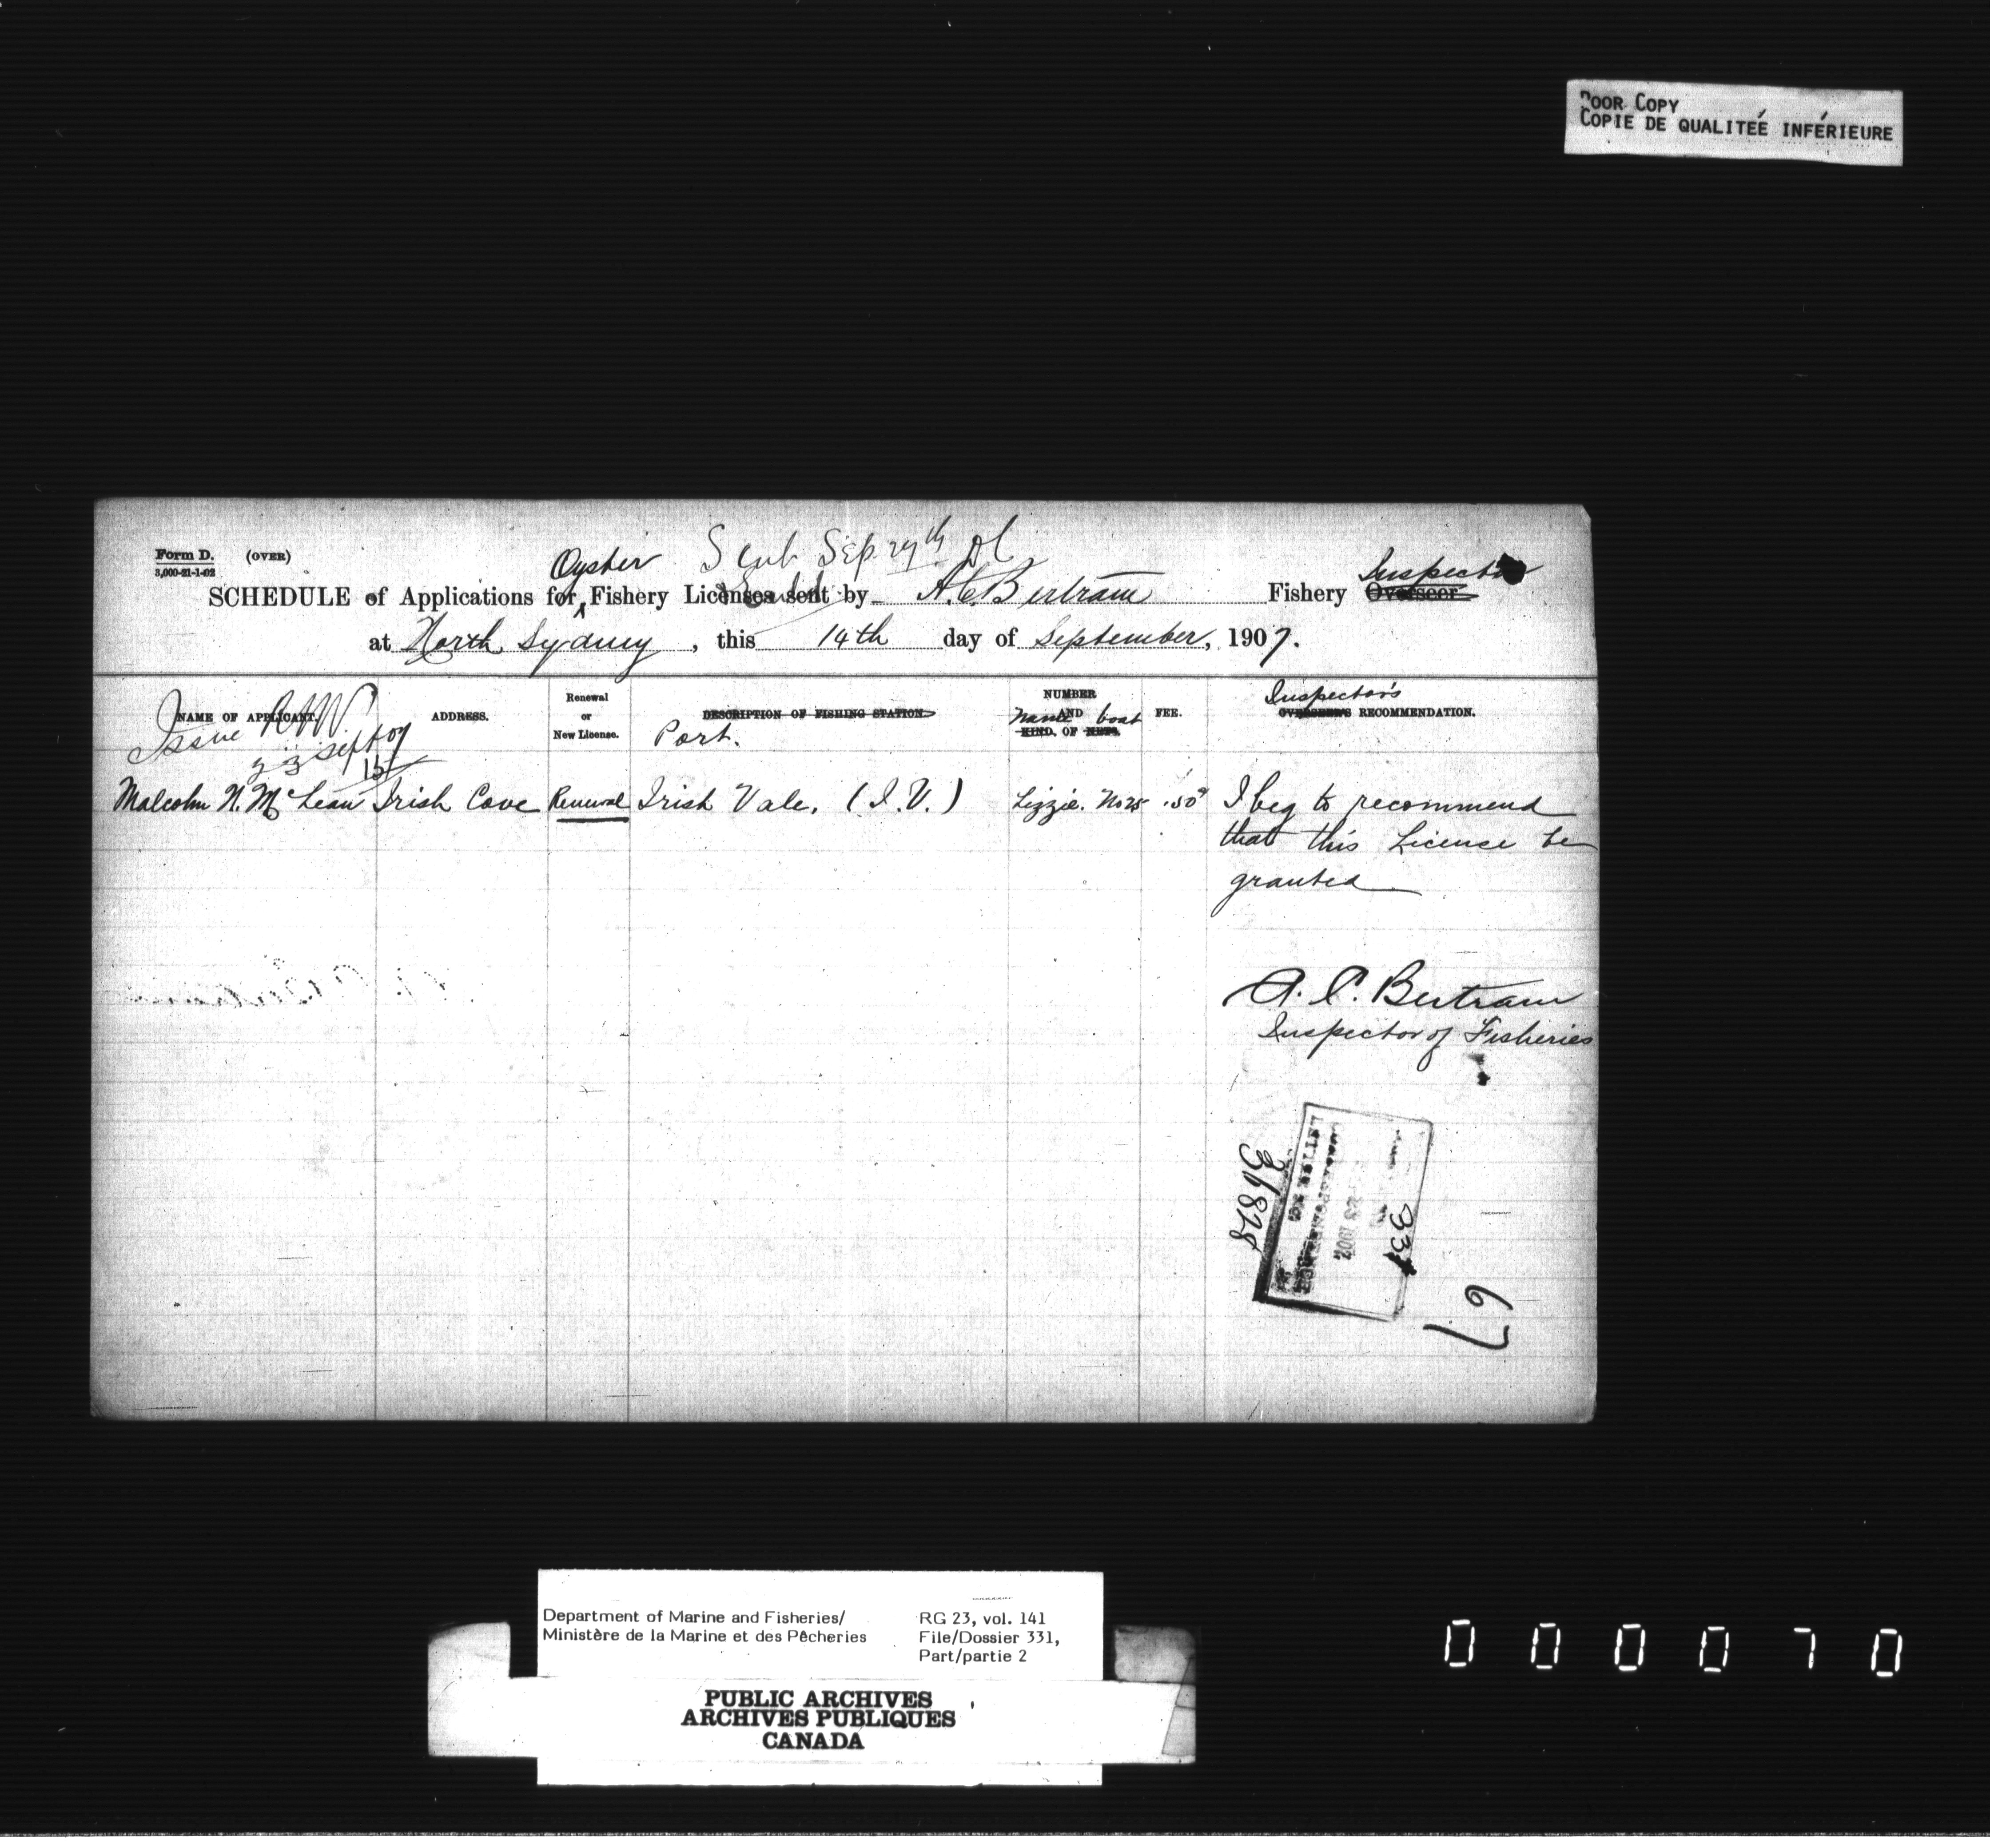 POOR COPY
COPIE DE QUALITEÉ INFÉRIEURE
Form D. (OVER)
3,000-21-1-02
Oyster Sent Sep 27th
SCHEDULE of Applications for Fishery Licenses sent by A. C. Bertram Fishery Inspector Overseer
at North Sydney, this 14th day of September, 1907.
NAME OF APPLICANT. ADDRESS. Renewal or New License. DESCRIPTION OF FISHING STATION Port. NUMBER AND KIND OF NETS. Name boat FEE. Inspector's OVERSEER'S RECOMMENDATION.
Issue
Sept 07
Malcolm N. McLean Irish Cove Renewal Irish Vale. (I.V.) Lizzie. No 25 .50 I beg to recommend
that this License be
granted
A. C. Bertram
Inspector of Fisheries
36828
331
67
Department of Marine and Fisheries/
Ministère de la Marine et des Pêcheries
RG 23, vol. 141
File/Dossier 331,
Part/partie 2
PUBLIC ARCHIVES
ARCHIVES PUBLIQUES
CANADA
000070